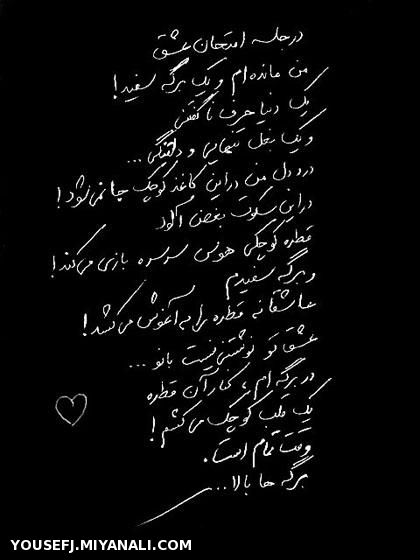 در جلسه امتحان عشق
من مانده‌ام و یک برگه سفید!
یک دنیا حرف ناگفتنی
و یک بغل تنهایی و دلتنگی...
درد دل من در این کاغذ کوچک جا نمی‌شود!
در این سکوت بغض آلود
قطره کوچکی هوس سرسره بازی می‌کند!
و برگه سفیدم
عاشقانه قطره را به آغوش می‌کشد!
عشق تو نوشتنی نیست بانو...
در برگه‌ام، کنار آن قطره
یک قلب کوچک می‌کشم!
وقت تمام است.
برگه ها بالا...
YOUSEFJ.MIYANALI.COM